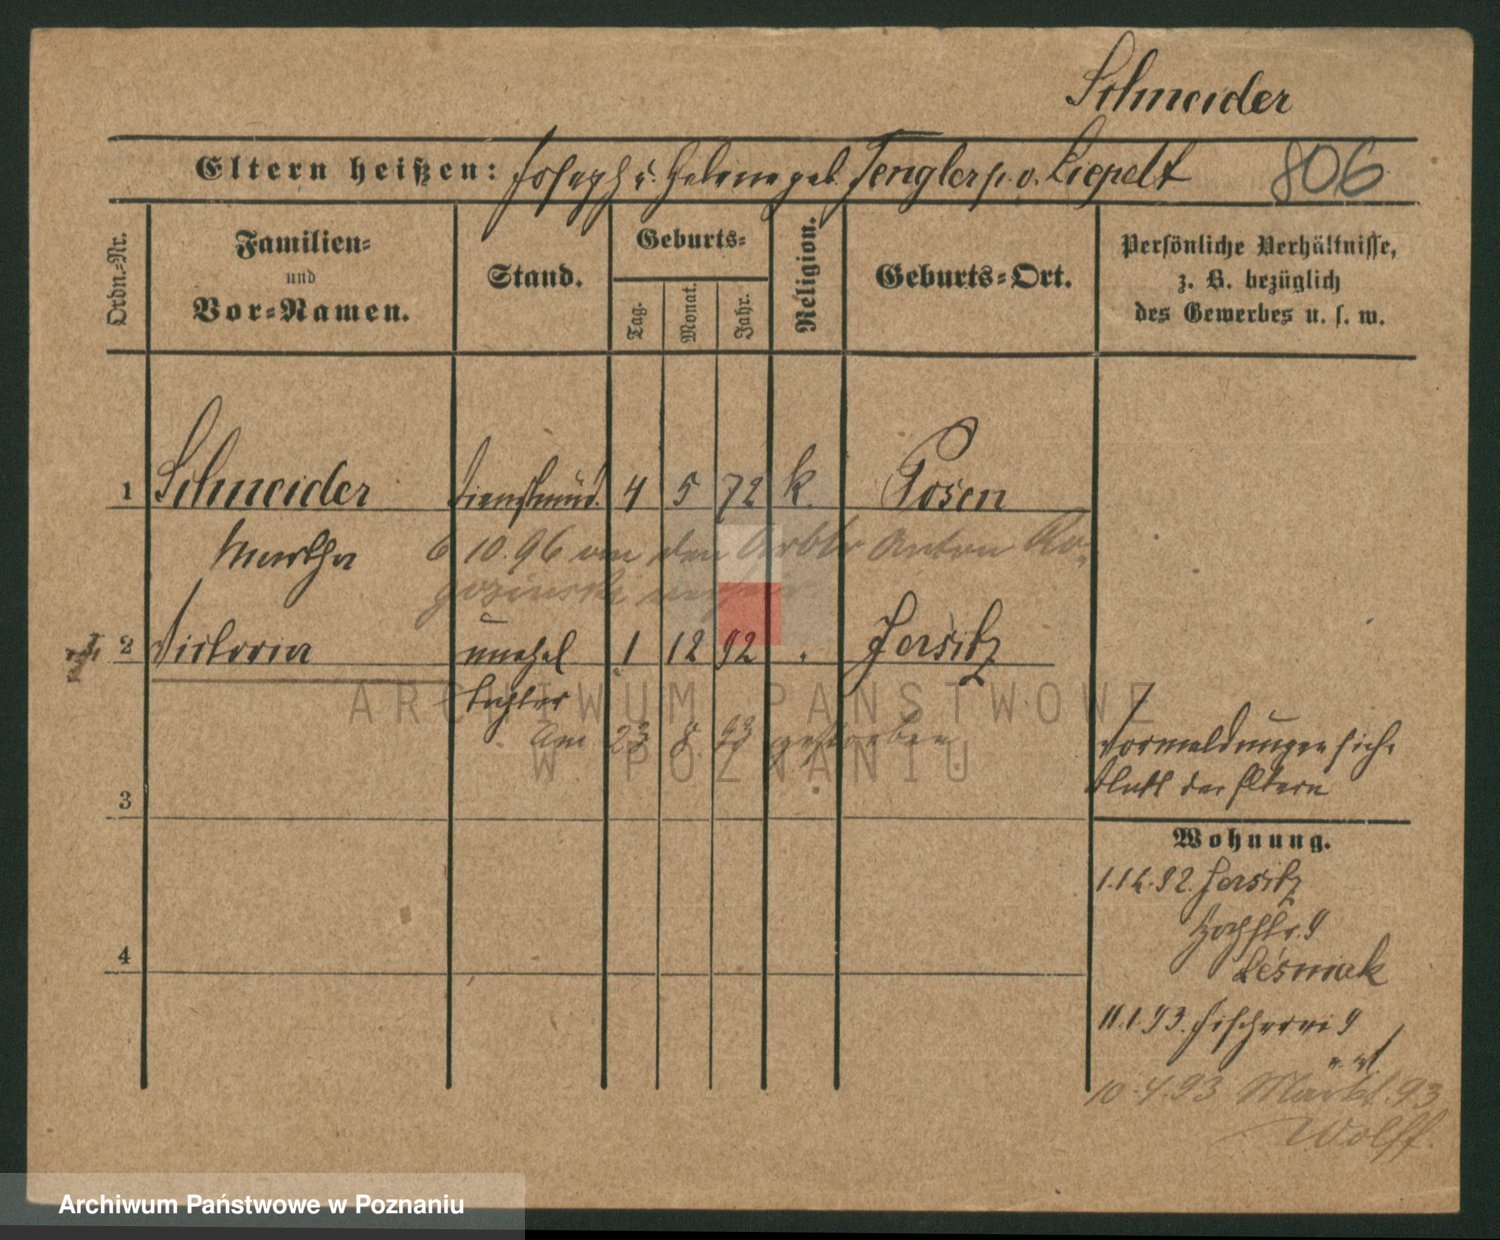 Schneider
Eltern heißen: Joseph u. Helene geb. Tengler p. o. Liepelt 806
Ordn.-Nr.
Familien-
und
Vor-Namen.
Stand.
Geburts-
Tag.
Monat.
Jahr.
Religion.
Geburts-Ort.
Persönliche Verhältnisse,
z. B. bezüglich
des Gewerbes u. s. w.
1 Schneider Dienstmäd. 4 5 72 k. Posen
Martha 6 10. 96 an den Arbtr Anton Ro-
gozinski
2 Victoria unehel 1 12 92 Jersitz
Tochter
Am 23 8. 93 gestorben
Vormeldungen sieh.
Blatt der Eltern
3
Wohnung.
1.12.92. Jersitz
Hochstr. 9
Lesniak
4
11.1.93. Fischerei 9
10.4.93 Markt. 93
Wolff.
ARCHIWUM PAŃSTWOWE
W POZNANIU
Archiwum Państwowe w Poznaniu